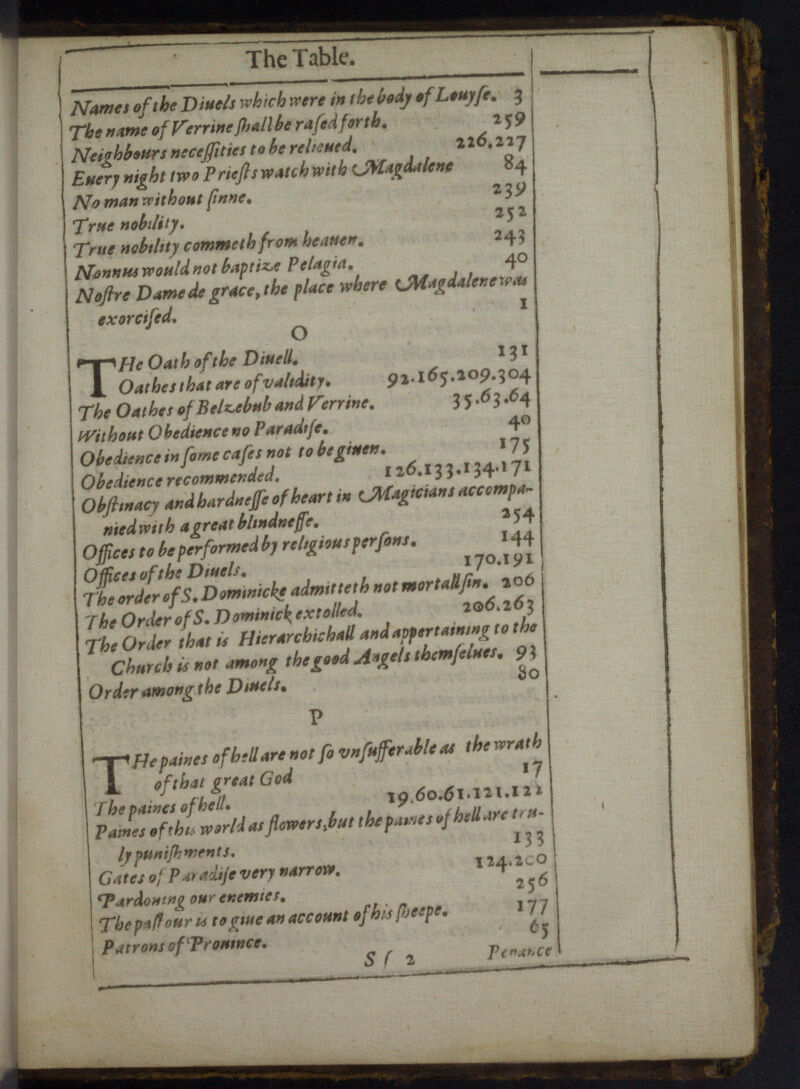 The Table.
Names of the Diuels which were in the body of Louyſe. 3
The name of Verrine ſhall be raſed forth. 259
Neighbours neceſſities to be relieued. 226.227
Euery night two Prieſts watch with Magdalene 84
No man without ſinne. 239
True nobility. 252
True nobility commeth from heauen. 243
Nonnus would not baptize Pelagia. 40
Noſtre Dame de grace, the place where Magdalene was
exorciſed. 1
O
THe Oath of the Diuell. 131
Oathes that are of validity. 92.165.209.304
The Oathes of Belzebub and Verrine. 35.63.64
Without Obedience no Paradiſe. 40
Obedience in ſome caſes not to be giuen. 175
Obedience recommended. 126.133.134.171
Obſtinacy and hardneſſe of heart in Magicians accompa-
nied with a great blindneſſe. 254
Offices to be performed by religious perſons. 144
Offices of the Diuels. 170.191
The order of S. Dominicke admitteth not mortall ſin. 206
The Order of S. Dominick extolled. 206.263
The Order that is Hierarchichall and appertaining to the
Church is not among the good Angels themſelues. 93
Order among the Diuels. 80
P
THe paines of hell are not ſo vnſufferable as the wrath
of that great God 17
The paines of hell. 19.60.61.121.122
Paines of this world as flowers, but the paines of hell are tru-
ly puniſhments. 133
Gates of Paradiſe very narrow. 124.200
Pardoning our enemies. 256
The paſtour is to giue an account of his ſheepe. 177
Patrons of Prouince. 65
Sſ 2 Penance